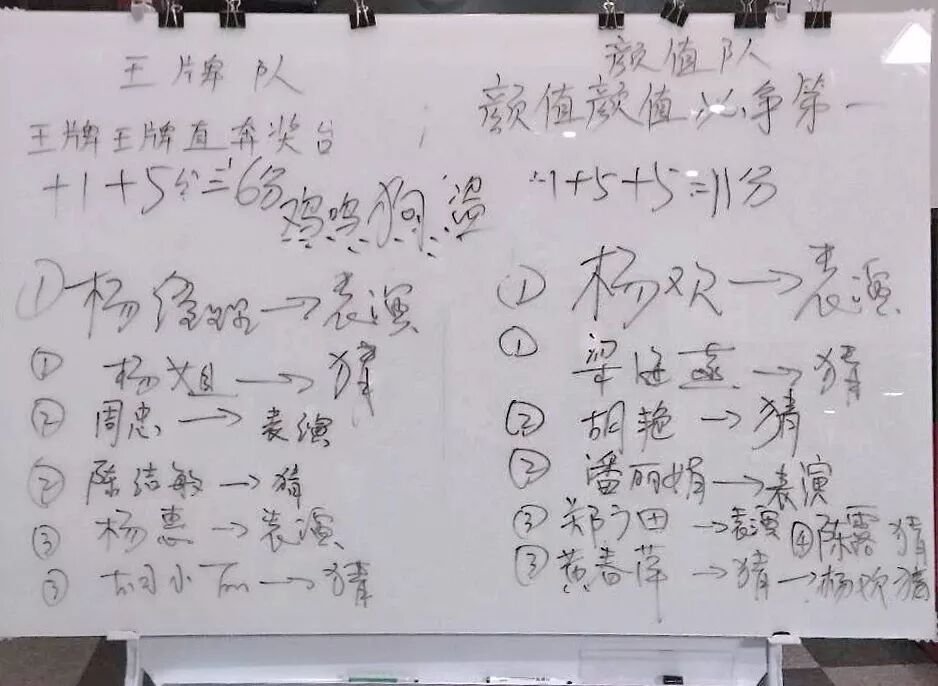 王牌队
王牌王牌直奔奖台
+1+5分=6分
鸡鸣狗盗
① 杨经理→表演
① 杨姐→猜
② 周惠→表演
② 陈结敏→猜
③ 杨惠→表演
③ 胡小丽→猜
颜值队
颜值颜值必争第一
+1+5+5=11分
① 杨欢→表演
① 梁海燕→猜
② 胡艳→猜
② 潘丽娟→表演
③ 郑广田→表演 ④陈露 猜
③ 黄春萍→猜→杨欢猜